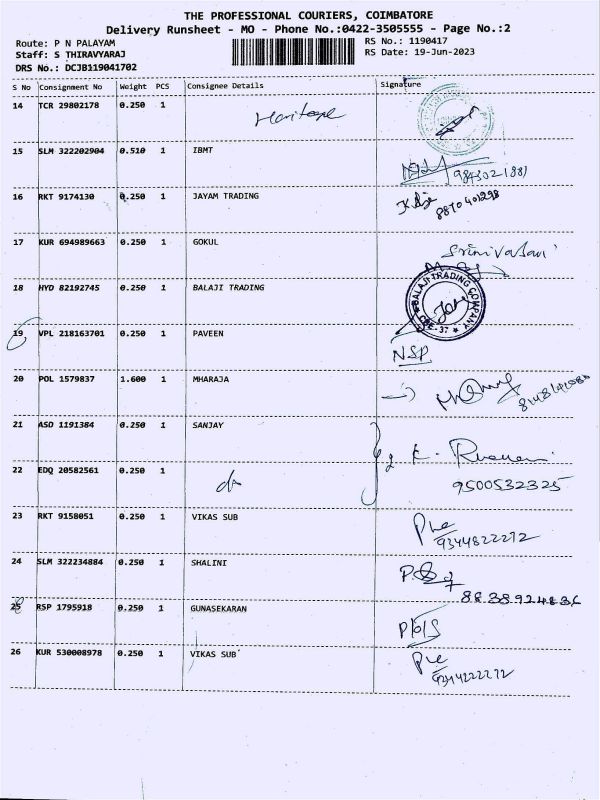 THE PROFESSIONAL COURIERS, COIMBATORE
Delivery Runsheet - MO - Phone No.:0422-3505555 - Page No.:2
Route: P N PALAYAM
RS No.: 1190417
Staff: S THIRAVYARAJ
RS Date: 19-Jun-2023
DRS No.: DCJB119041702
S No Consignment No Weight PCS Consignee Details Signature
14 TCR 29802178 0.250 1 Heritage
15 SLM 322202904 0.510 1 IBMT
16 RKT 9174130 0.250 1 JAYAM TRADING
17 KUR 694989663 0.250 1 GOKUL
18 HYD 82192745 0.250 1 BALAJI TRADING
BALAJI TRADING COMPANY
19 VPL 218163701 0.250 1 PAVEEN NSP
20 POL 1579837 1.600 1 MHARAJA
21 ASD 1191384 0.250 1 SANJAY
22 EDQ 20582561 0.250 1 9500532325
23 RKT 9158051 0.250 1 VIKAS SUB
9344822272
24 SLM 322234884 0.250 1 SHALINI
25 RSP 1795918 0.250 1 GUNASEKARAN
26 KUR 530008978 0.250 1 VIKAS SUB